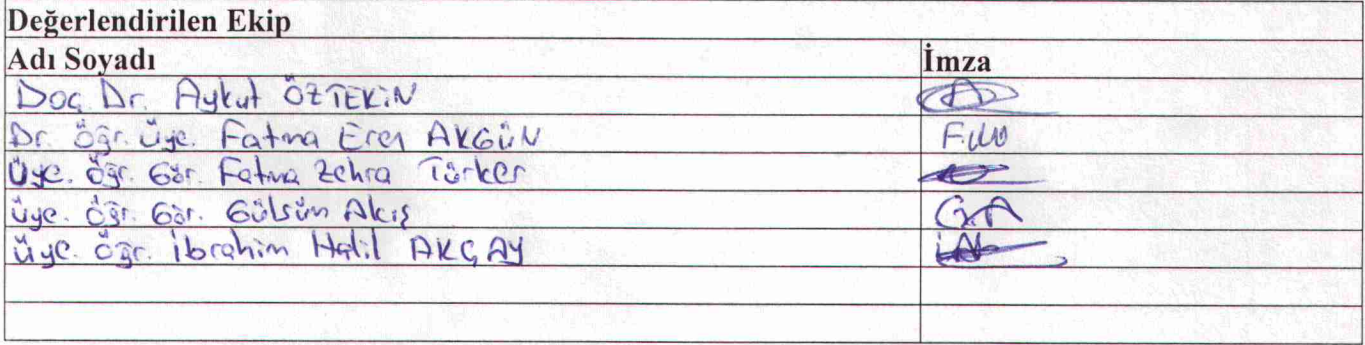 Değerlendirilen Ekip
Adı Soyadı İmza
Doç. Dr. Aykut ÖZTEKİN
Dr. Öğr. Üye. Fatma Eren AKGÜN
Üye. Öğr. Gör. Fatma Zehra Türker
Üye. Öğr. Gör. Gülsün Akış
Üye. Öğr. İbrahim Halil AKÇAY